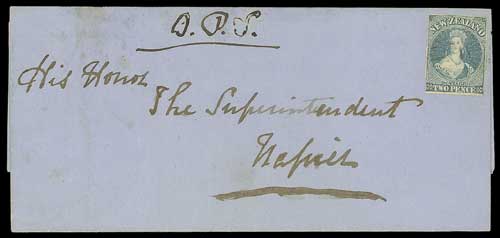 O. P. S.
NEW ZEALAND
TWO PENCE
His Honor
The Superintendent
Napier